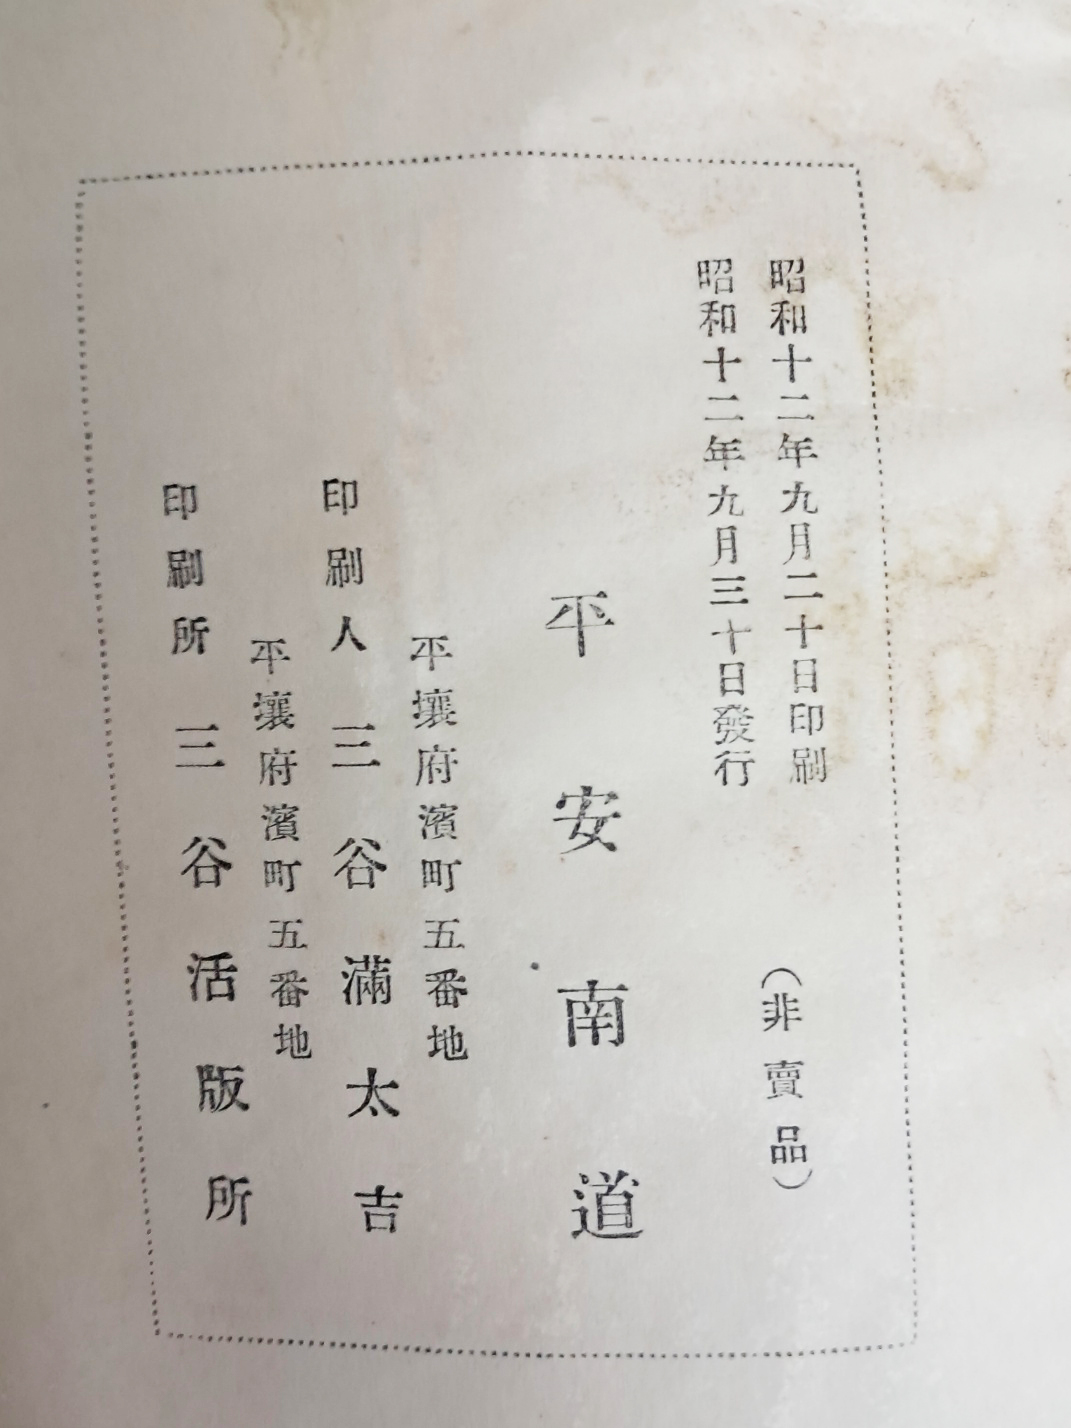 昭和十二年九月二十日印刷
昭和十二年九月三十日發行
（非賣品）
平安南道
平壤府濱町五番地
印刷人 三谷滿太吉
平壤府濱町五番地
印刷所 三谷活版所